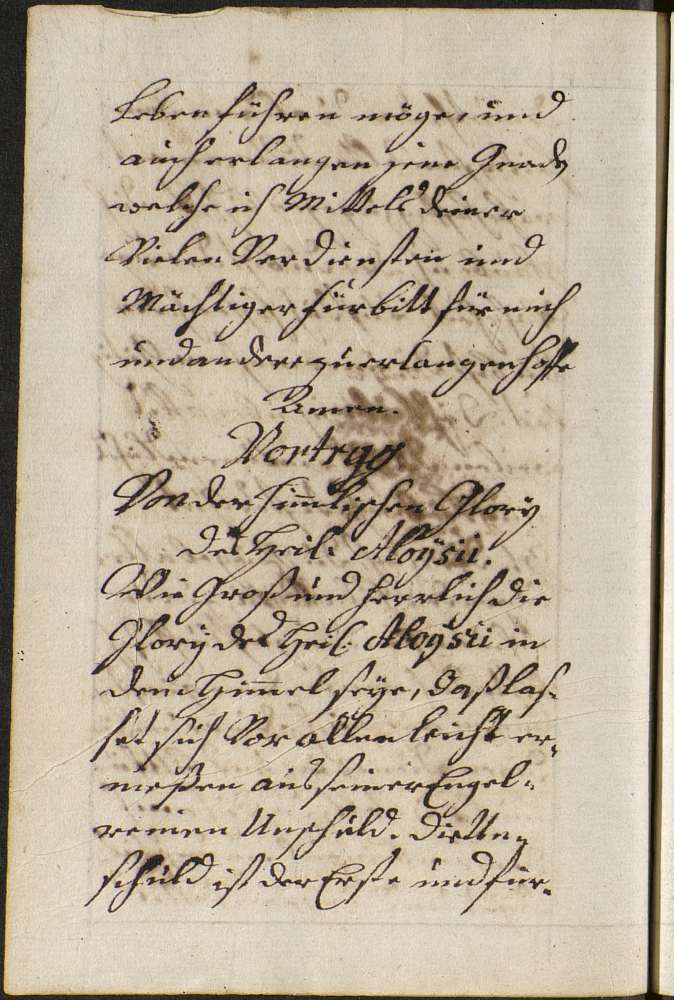 Leben führen möge, und
auch erlangen jene Gnade
welche ich Mittels deiner
Vielen Verdiensten und
Mächtiger fürbitt für mich
und andere zu erlangen hoffe
Amen.
Vortrag
Von der himlischen Glory
des Heil: Aloÿsii.
Wie Groß und herrlich die
Glory des Heil: Aloysii in
dem Himmel seÿe, daß las-
set sich Vor allen leicht er-
meßen aus seiner Engel-
reinen Unschuld. die Un-
schuld ist der Erste und für-